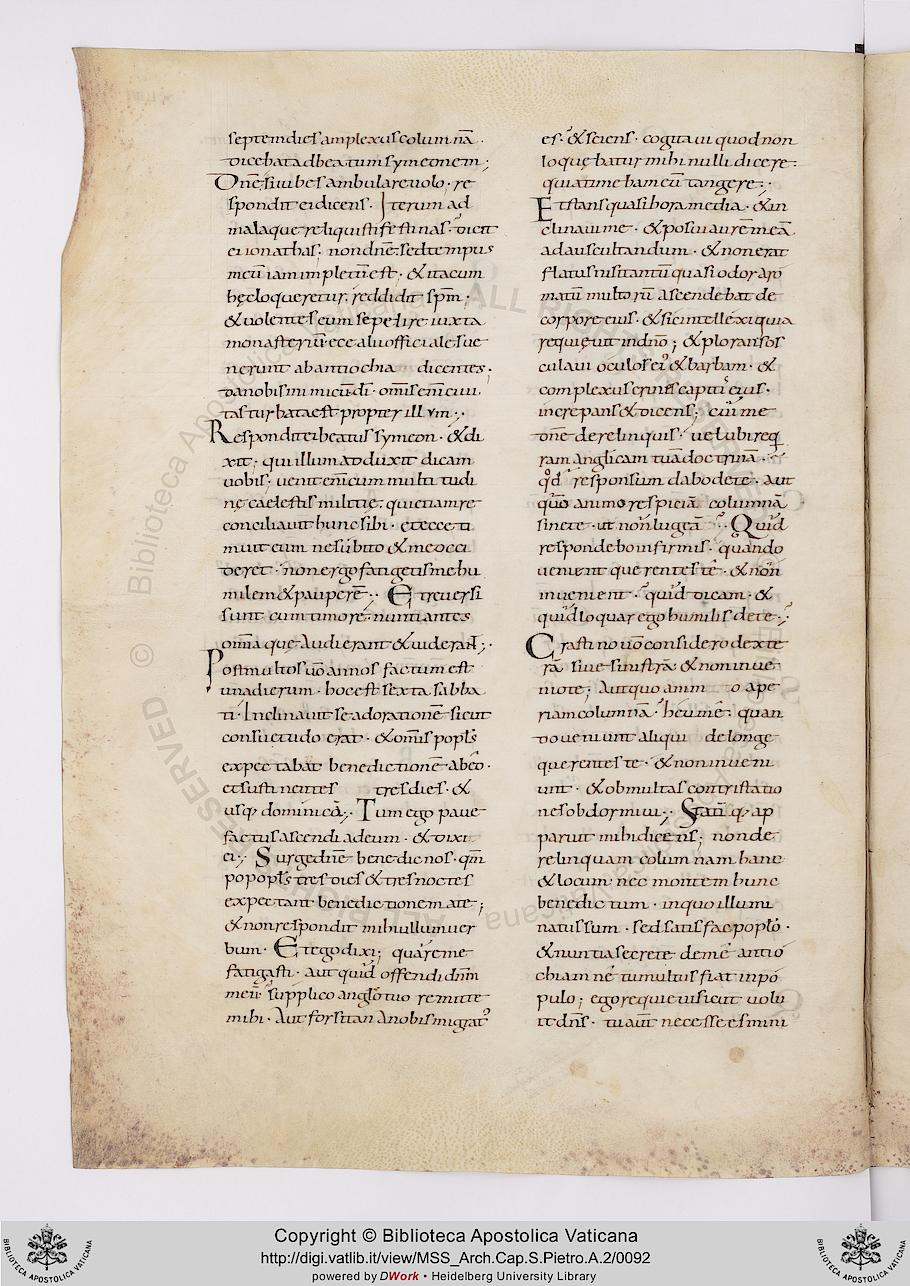 septem dies amplexus columnā ·
dicebat ad beatum symeonem ;
Dn̄e · si iubes ambulare uolo · re
spondit ei dicens · Iterum ad
mala que reliquisti festinas · dicit
ei ionathas · non dn̄e · sed tempus
meū iam impletū est · & ita cum
hęc loqueretur · reddidit sp̄m ·
& uolentes eum sepelire iuxta
monasteriū · ecce alii officiales ue
nerunt ab antiochia dicentes ·
da nobis inimicū di · omīs enī ciui
tas turbata est propter illum ·,
Respondit ei beatus symeon · & di
xit ; qui illum adduxit dicam
uobis · uenit enī cum multitudi
nę caelestis militię · qui etiam re
conciliauit hunc sibi · et ecce ti
mui eum ne subito & me occi
deret · non ergo fatigetis me hu
milem & pauperē ·, Et reuersi
sunt cum timore nuntiantes
om̄a que audierant & uiderant ·,
Post multos uō annos factum est
una dierum · hoc est sexta sabba
ti · Inclinauit se ad orationē sicut
consuetudo erat · & omīs popls
expectabat benedictionē ab eo ·
et sustinentes tres dies · &
usq; dominicā ·, Tum ego paue
factus ascendi ad eum · & dixi
ei ·, Surge dn̄e benedic nos · qm̄
popopls tres dies & tres noctes
expectant benedictionem a te ;
& non respondit mihi ullum uer
bum · Et ego dixi ; quare me
fatigasti · aut quid offendi dn̄m
meū · supplico anglo tuo remitte
mihi · Aut forsitan a nobis migrat
es · & sciens · cogitaui quod non
loquębatur mihi nulli dicere ·
quia timebam eū tangere ·,
Et stans quasi hora media · & in
clinaui me · & posui aurē meā
ad auscultandum · & non erat
flatus nisi tantū quasi odor aro
matū multorū ascendebat de
corpore eius · & sic intellexi quia
requieuit in dn̄o ; & plorans os
culaui oculos ei & barbam · &
complexus crines capitis eius ·
increpans & dicens ; cui me
dn̄e derelinquis · uel ubi req
ram anglicam tuā doctrinā ·
qd responsum dabo de te · aut
quō animo respiciā columnā
sine te · ut non lugeā ·, Quid
respondebo infirmis · quando
uenient querentes te · & non
inuenient · quid dicam · &
quid loquar ego humilis de te ·,
Crastino uō considero dexte
rā siue sinistrā & non inue
nio te ; Aut quo anim o ape
riam columnā · heu me · quan
do ueniunt aliqui de longe
querentes te · & non inueni
unt · & ob multas contristatio
nes obdormiui ·, Statī q; ap
paruit mihi dicēns ; non de
relinquam columnam hanc
& locum · nec montem hunc
benedictum · in quo illumi
natus sum · sed satisfac poplo ·
& nuntia secrete de me antio
chiam ne tumultus fiat in po
pulo ; ego requieui sicut uolu
it dn̄s · tu aut̄ necesse es mini
Copyright © Biblioteca Apostolica Vaticana
http://digi.vatlib.it/view/MSS_Arch.Cap.S.Pietro.A.2/0092
powered by DWork • Heidelberg University Library